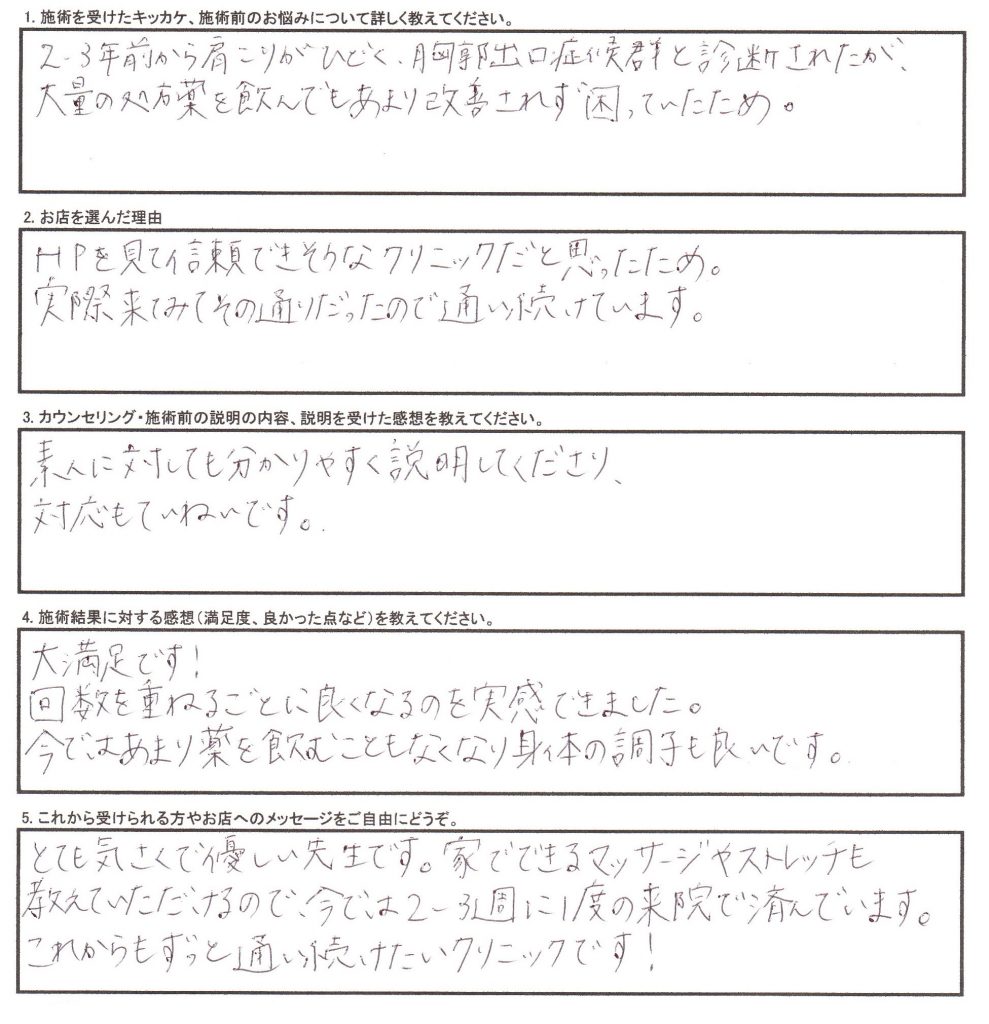 1. 施術を受けたキッカケ、施術前のお悩みについて詳しく教えてください。
2-3年前から肩こりがひどく、胸郭出口症候群と診断されたが、
大量の処方薬を飲んでもあまり改善されず困っていたため。
2. お店を選んだ理由
HPを見て信頼できそうなクリニックだと思ったため。
実際来てみてその通りだったので通い続けています。
3. カウンセリング・施術前の説明の内容、説明を受けた感想を教えてください。
素人に対しても分かりやすく説明してくださり、
対応もていねいです。
4. 施術結果に対する感想(満足度、良かった点など)を教えてください。
大満足です!
回数を重ねるごとに良くなるのを実感できました。
今ではあまり薬を飲むこともなくなり身体の調子も良いです。
5. これから受けられる方やお店へのメッセージをご自由にどうぞ。
とても気さくで優しい先生です。家でできるマッサージやストレッチも
教えていただけるので、今では2-3週に1度の来院で済んでいます。
これからもずっと通い続けたいクリニックです!